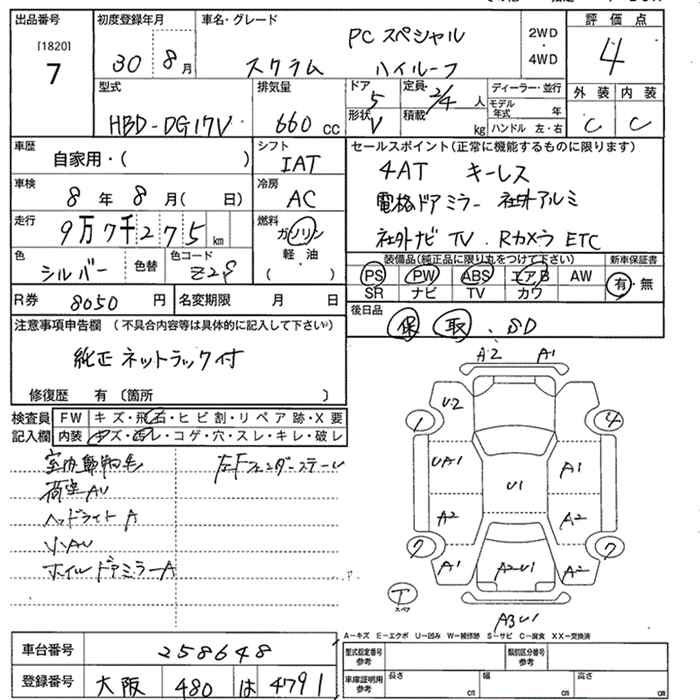 出品番号 初度登録年月 車名・グレード 2WD・4WD 評価点
[1820]
7 30 8月 PC スペシャル 4
スクラム ハイルーフ
型式 排気量 ドア 定員 人 ディーラー・並行 外装 内装
HBD-DG17V 660 cc 5 2/4 モデル年式 年 C C
形状 V 積載 kg ハンドル 左・右
車歴 シフト セールスポイント(正常に機能するものに限ります)
自家用・( ) IAT 4AT キーレス
車検 冷房 電格ドアミラー 社外アルミ
8年 8月( 日) AC 社外ナビ TV . Rカメラ ETC
走行 燃料
9万7千275 km ガソリン
軽・油
( )
色 色替 色コード 装備品(純正品に限り丸をつけて下さい) 新車保証書
シルバー Z2S PS PW ABS エアB AW 有・無
SR ナビ TV カワ
R券 8050 円 名変期限 月 日 後日品
保 取 . SD
注意事項申告欄 (不具合内容等は具体的に記入して下さい)
純正ネットラック付
修復歴 有 〔箇所 〕
検査員 FW キズ・飛石・ヒビ割・リペア跡・X要
記入欄 内装 キズ・凹レ・コゲ・穴・スレ・キレ・破レ
左Fフェンダーステール
荷室AU
ヘッドライトA
ホイルドアミラーA
A2 A1
U2
1 4
UA1 U1 A1
A2 A2
7 7
A1 A2U1 A2
T
スペア
A3U1
A-キズ E-エクボ U-凹み W-補修跡 S-サビ C-腐食 XX-交換済
車台番号 258648 型式指定番号 参考 類別区分番号 参考
登録番号 大阪 480 は 4791 車庫証明用 参考 長さ cm 幅 cm 高さ cm